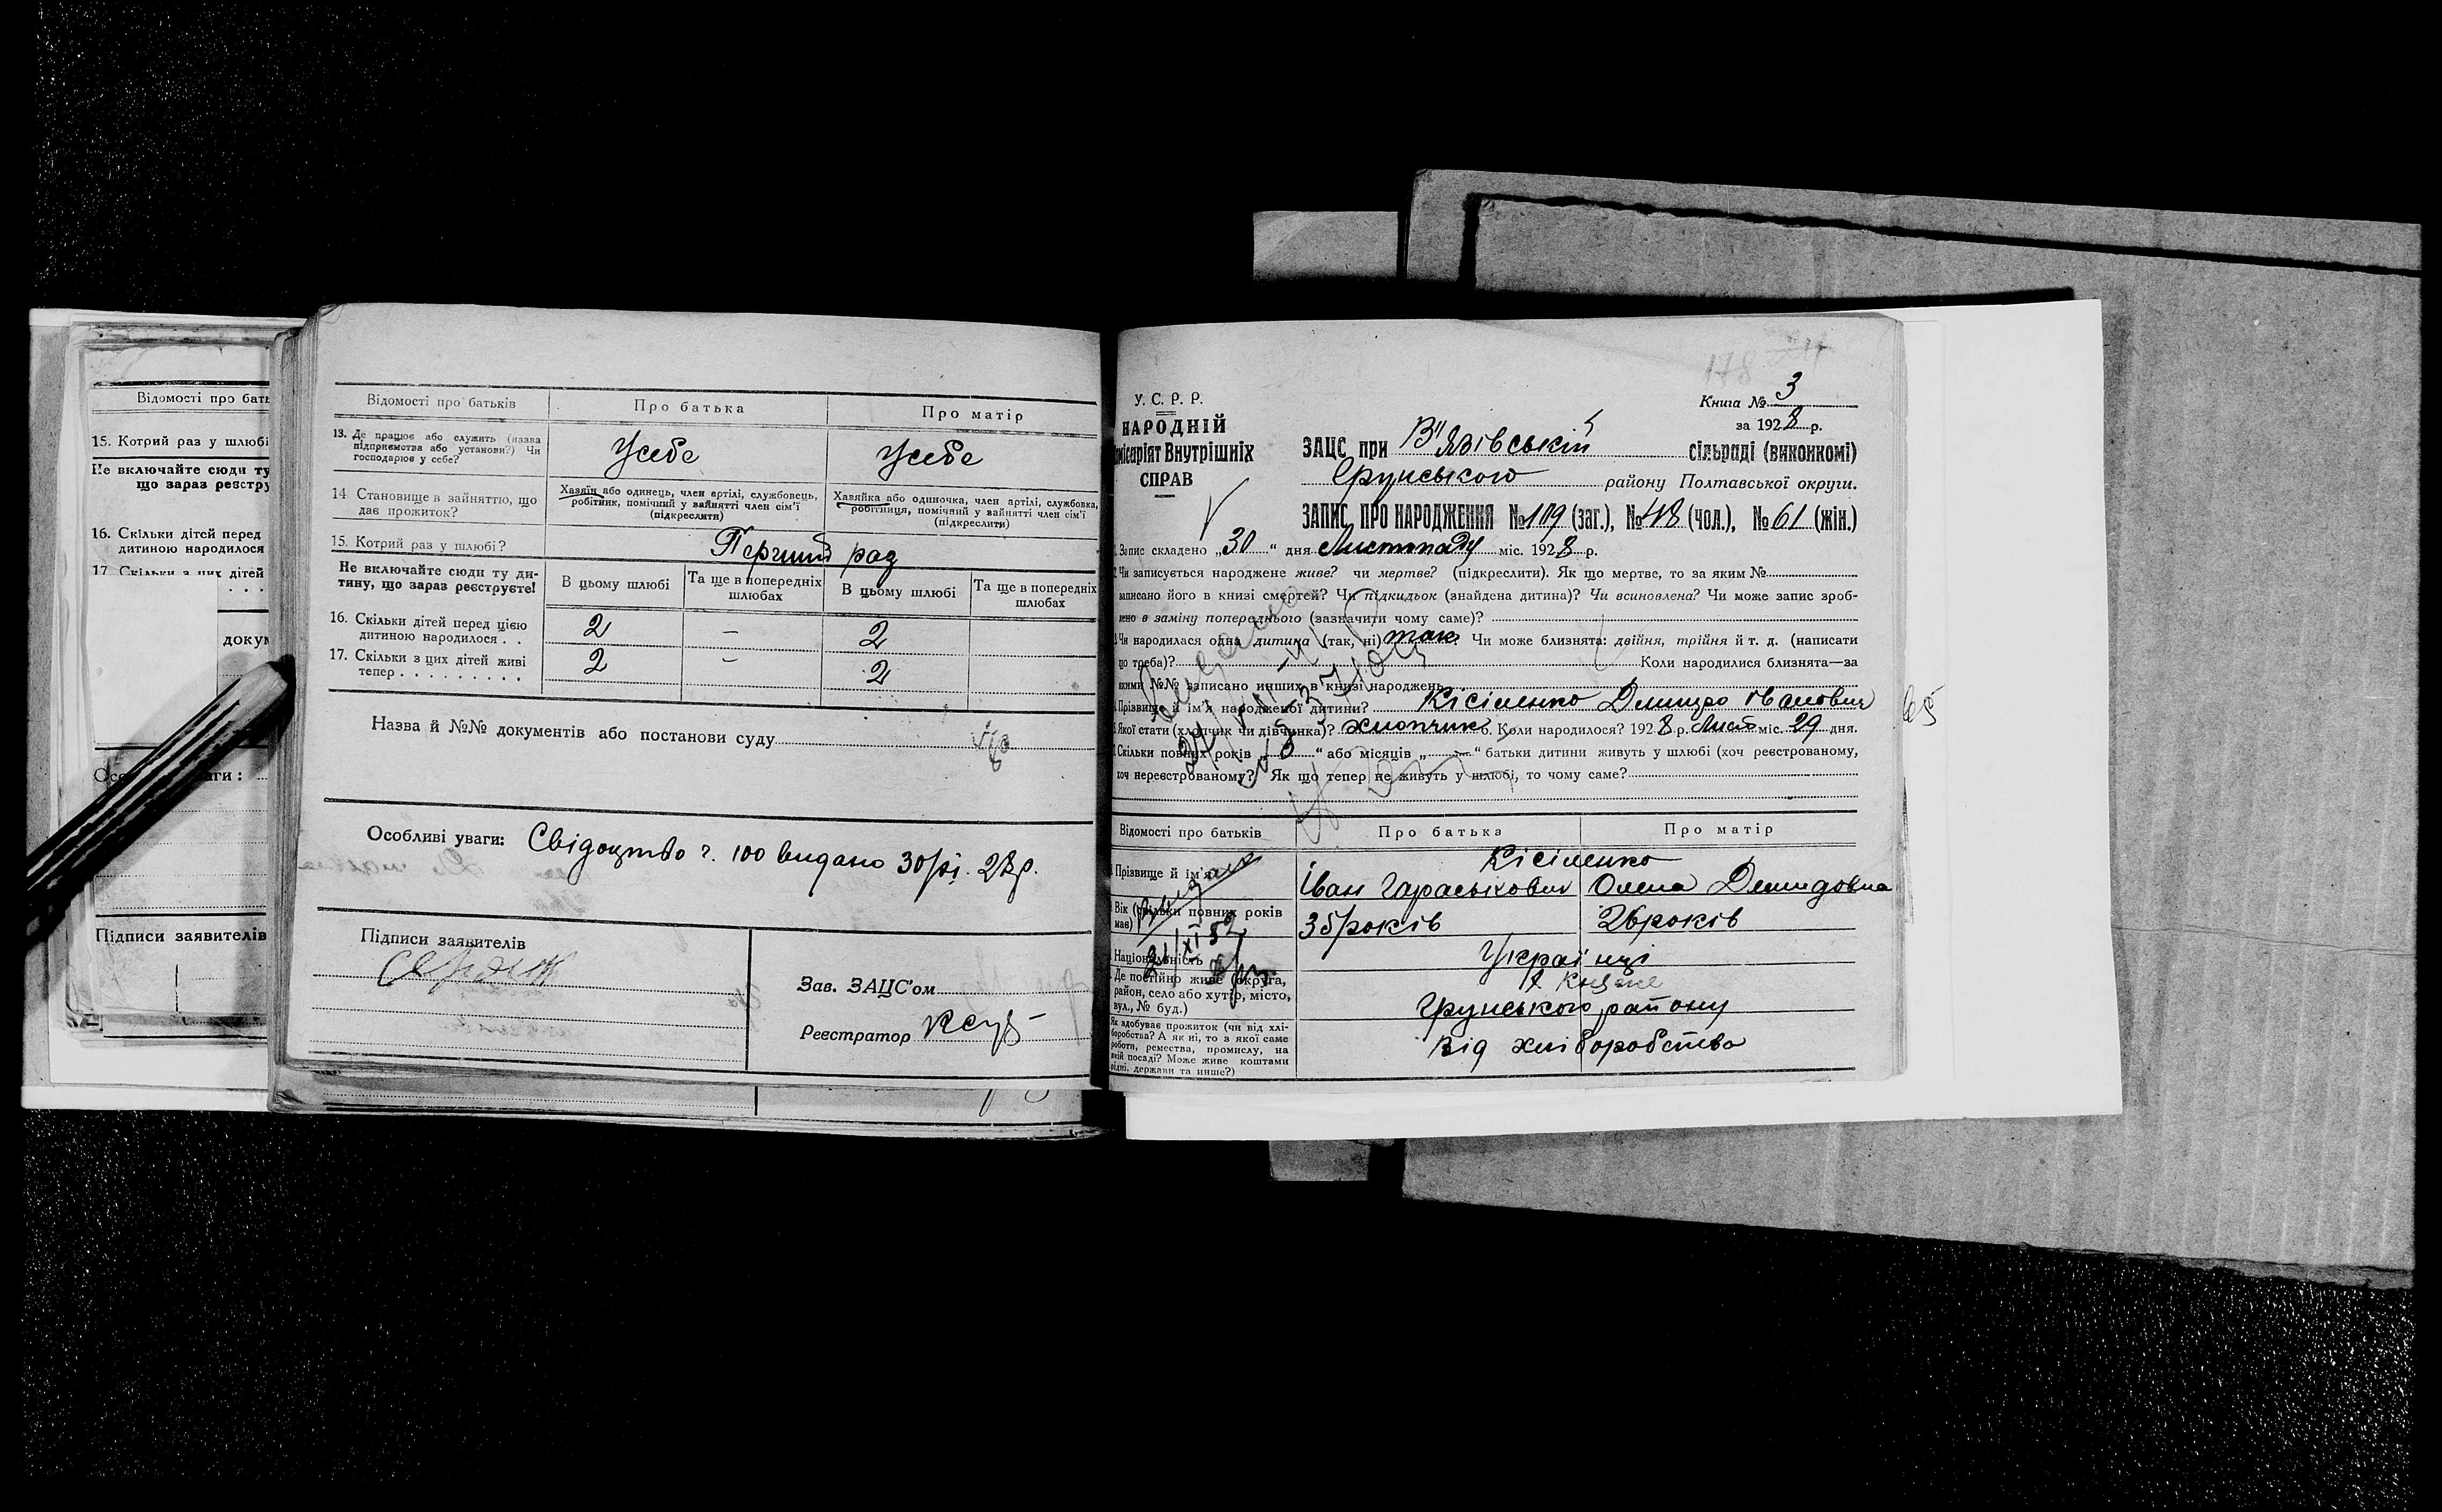 Відомості про бать
15. Котрий раз у шлюбі
Не включайте сюди ту
що зараз реєстру
16. Скільки дітей перед
дитиною народилося
17. Скільки з цих дітей
докум
Підписи заявителів
Відомості про батьків
Про батька
Про матір
13. Де працює або служить (назва
підприємства або установи?) Чи
господарює у себе?
У себе
У себе
14 Становище в зайняттю, що
дає прожиток?
Хазяїн або одинець, член артілі, службовець,
робітник, помічний у зайнятті член сім'ї
(підкреслити)
Хазяйка або одиночка, член артілі, службовка,
робітниця, помічний у зайнятті член сім'ї
(підкреслити)
15. Котрий раз у шлюбі?
Перший раз
Не включайте сюди ту ди-
тину, що зараз реєструєте!
В цьому шлюбі
Та ще в попередніх
шлюбах
В цьому шлюбі
Та ще в попередніх
шлюбах
16. Скільки дітей перед цією
дитиною народилося . .
2 – 2
17. Скільки з цих дітей живі
тепер . . . . . . . . .
2 – 2
Назва й №№ документів або постанови суду
Особливі уваги: Свідоцтво ч. 100 видано 30/XI. 28р.
Підписи заявителів
Зав. ЗАЦС'ом
Реєстратор
178
У. С. Р. Р.
НАРОДНІЙ
місаріят Внутрішніх
СПРАВ
Книга № 3
за 1928 р.
ЗАЦС при В'язівській сільраді (виконкомі)
Грунського району Полтавської округи.
ЗАПИС ПРО НАРОДЖЕННЯ №109 (заг.), №48 (чол.), №61 (жін.)
Запис складено „30“ дня Листопаду міс. 1928 р.
Чи записується народжене живе? чи мертве? (підкреслити). Як що мертве, то за яким №
записано його в книзі смертей? Чи підкидьок (знайдена дитина)? Чи всиновлена? Чи може запис зроб-
лено в заміну попереднього (зазначити чому саме)?
Чи народилася одна дитина (так, ні) так Чи може близнята: двійня, трійня й т. д. (написати
що треба)? Коли народилися близнята—за
якими №№ записано инших в книзі народжень
Прізвище й ім'я народженої дитини? Кісіленко Дмитро Іванович
Якої стати (хлопчик чи дівчинка)? хлопчик б. Коли народилося? 1928 р. Лист міс. 29 дня.
Скільки повних років „8“ або місяців „—“ батьки дитини живуть у шлюбі (хоч реєстрованому,
хоч нереєстрованому)? Як що тепер не живуть у шлюбі, то чому саме?
Відомості про батьків
Про батька
Про матір
Кісіленко
Прізвище й ім'я
Іван Гараськович
Олена Демидовна
Вік (скільки повних років
має)
35 років
26 років
Національність
Українці
Де постійно живе (округа,
район, село або хутір, місто,
вул., № буд.)
Грунського району
Як здобуває прожиток (чи від хлі-
боробства? А як ні, то з якої саме
роботи, ремества, промислу, на
якій посаді? Може живе коштами
рідні, держави та инше?)
Від хліборобства